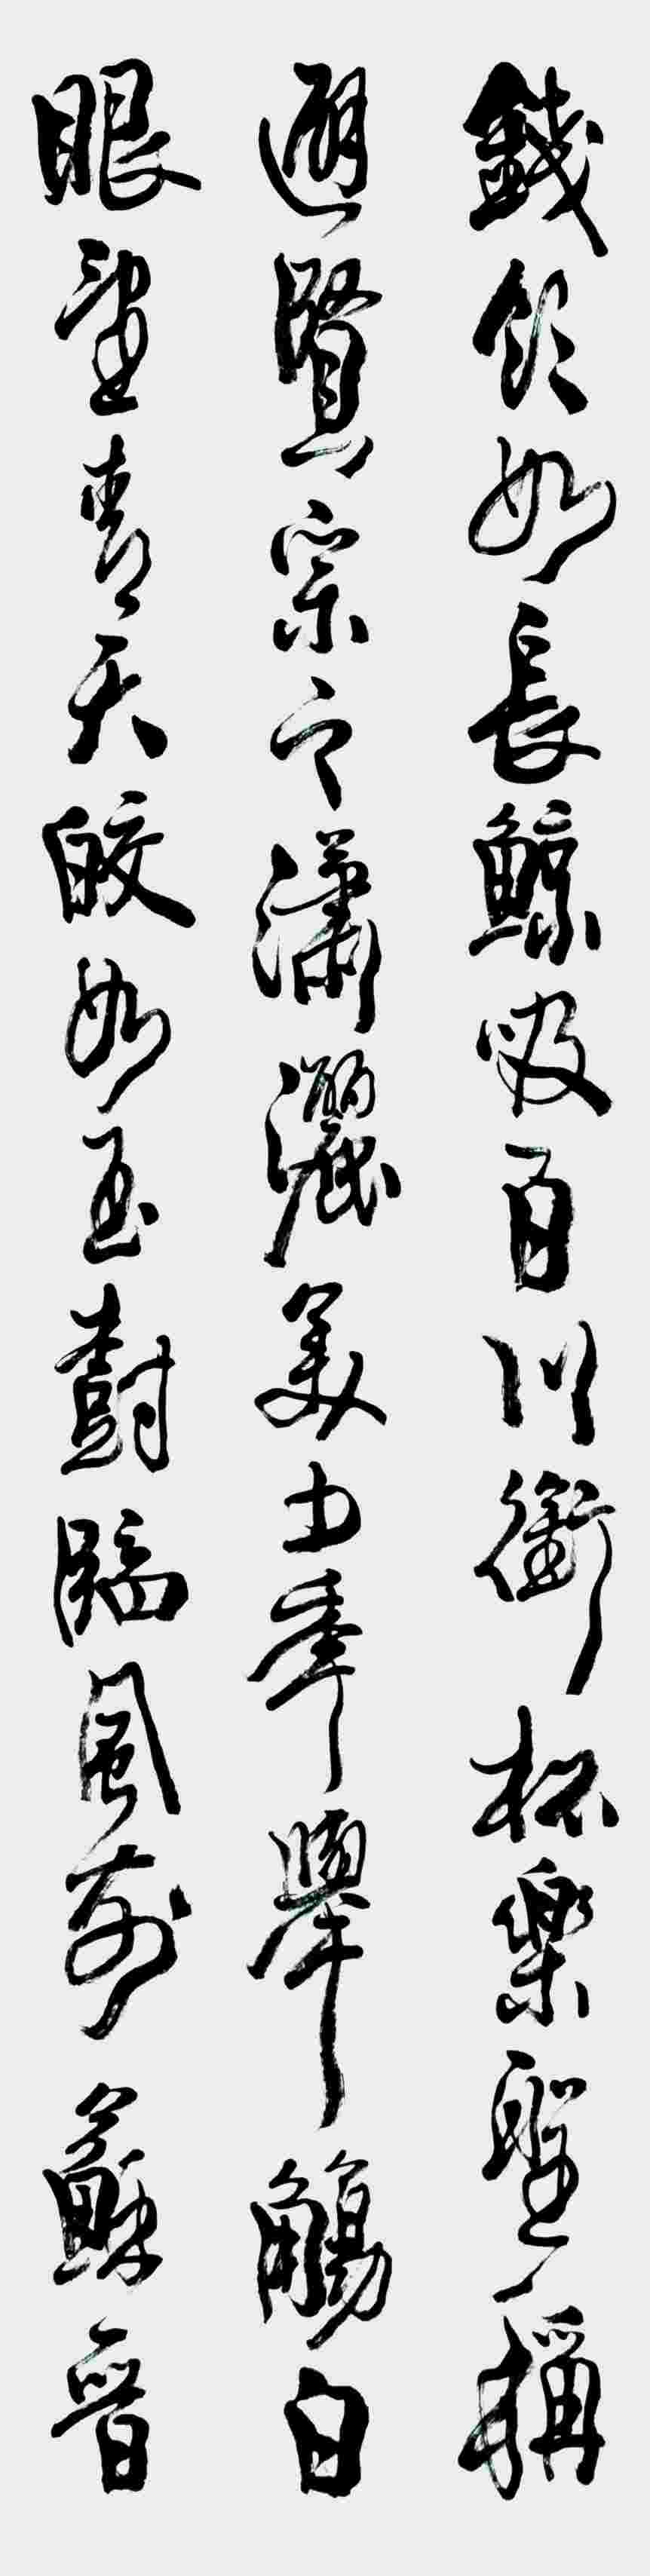 錢飲如長鯨吸百川銜杯樂聖稱
避賢宗之瀟灑美少年舉觴白
眼望青天皎如玉樹臨風前蘇晉